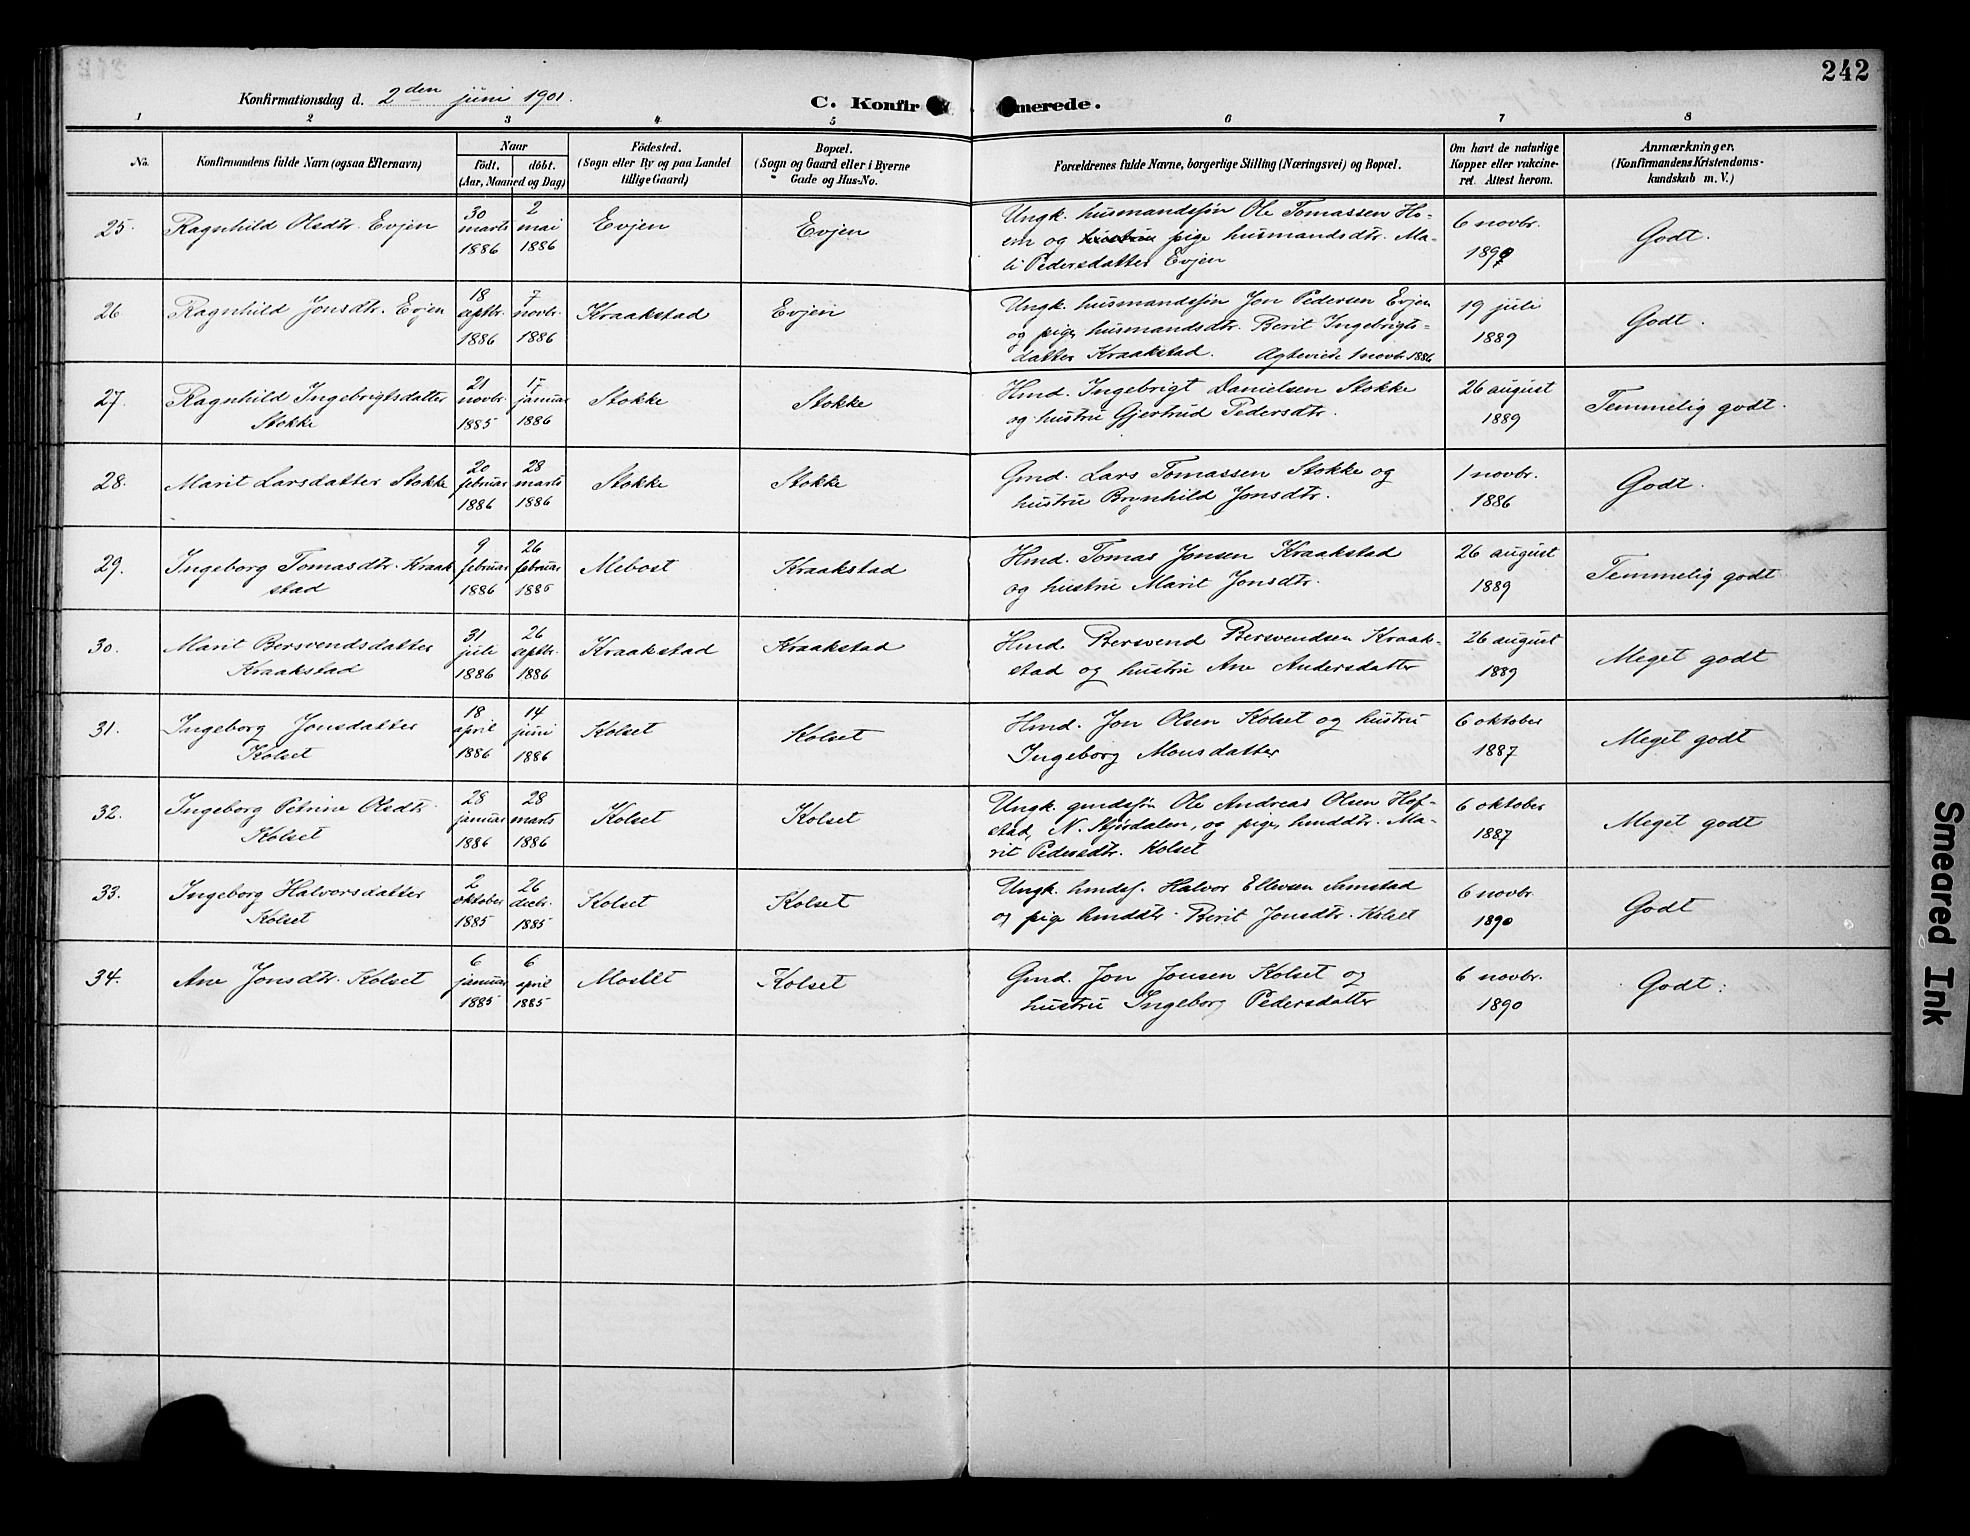 242
Konfirmationsdag d. 2den juni 1901.
C. Konfir merede.
1 2 3 4 5 6 7 8
No. Konfirmandens fulde Navn (ogsaa Efternavn) Naar født. døbt. (Aar, Maaned og Dag) Födested. (Sogn eller By og paa Landet tillige Gaard) Bopæl. (Sogn og Gaard eller i Byerne Gade og Hus-No. Forældrenes fulde Navne, borgerlige Stilling (Næringsvei) og Bopæl. Om havt de naturlige Kopper eller vakcineret. Attest herom. Anmærkninger. (Konfirmandens Kristendomskundskab m. V.)
25. Ragnhild Olsdtr. Evjen 30 marts 1886 2 mai 1886 Evjen Evjen Ungk. husmandssøn Ole Tomassen Ho-
em og hustru pige husmandsdtr. Ma-
li Pedersdatter Evjen 6 novbr. 1890 Godt.
26. Ragnhild Jonsdtr. Evjen 18 septbr. 1886 7 novbr. 1886 Kraakstad Evjen Ungk. husmandssøn Jon Pedersen Evjen
og pige husmandsdtr. Berit Ingebrigts-
datter Kraakstad. Agteviede 1 novbr. 1886 19 juli 1889 Godt.
27. Ragnhild Ingebrigtsdatter
Stokke 21 novbr. 1885 17 januar 1886 Stokke Stokke Hmd. Ingebrigt Danielsen Stokke
og hustru Gjertrud Pedersdtr. 26 august 1889 Temmelig godt.
28. Marit Larsdatter Stokke 20 februar 1886 28 marts 1886 Stokke Stokke Gmd. Lars Tomassen Stokke og
hustru Brynhild Jonsdtr. 1 novbr. 1886 Godt.
29. Ingeborg Tomasdtr. Kraak
stad 9 februar 1886 26 februar 1885 Mebost Kraakstad Hmd. Tomas Jonsen Kraakstad
og hustru Marit Jonsdtr. 26 august 1889 Temmelig godt
30. Marit Bersvendsdatter
Kraakstad 31 juli 1886 26 septbr. 1886 Kraakstad Kraakstad Hmd. Bersvend Bersvendsen Kraak-
stad og hustru Ane Andersdatter 26 august 1889 Meget godt
31. Ingeborg Jonsdatter
Kolset 18 april 1886 14 juni 1886 Kolset Kolset Hmd. Jon Olsen Kolset og hustru
Ingeborg Monsdatter 6 oktober 1887 Meget godt
32. Ingeborg Petrine Olsdtr.
Kolset 28 januar 1886 28 marts 1886 Kolset Kolset Ungk. gmdssøn Ole Andreas Olsen Hof-
stad, N. Stjørdalen, og pige, hmddtr. Ma-
rit Pedersdtr. Kolset 6 oktober 1887 Meget godt
33. Ingeborg Halvorsdatter
Kolset 2 oktober 1885 26 decbr. 1885 Kolset Kolset Ungk. hmdss. Halvor Ellevsen Samstad
og pige hmddtr. Berit Jonsdtr. Kolset 6 novbr. 1890 Godt
34. Ane Jonsdtr. Kolset 6 januar 1885 6 april 1885 Moslet Kolset Gmd. Jon Jonsen Kolset og
hustru Ingeborg Pedersdatter 6 novbr. 1890 Godt.
Smeared Ink